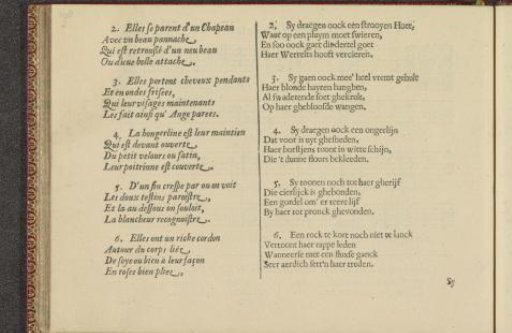 2. Elles se parent d'un Chapeau
Avec un beau pannache,
Qui est retroussé d'un neu beau
Ou d'une belle attache,
3. Elles portent cheveux pendants
Et en ondes frisees,
Qui leur visages maintenants
Les fait ainsi qu' Ange parees.
4. La hongerline est leur maintien
Qui est devant ouverte,
Du petit velours ou satin,
Leur poitrinne est couverte,
5. D'un sin crespe par ou on voit
Les doux testins paroistre,
Et la au dessous on souloit,
La blancheur recognoistre,
6. Elles ont un riche cordon
Autour du corps liée,
De soye ou bien à leur façon
En roses bien pliee,
2. Sy draegen oock een strooyen Haet,
Waer op een pluym moet swieren,
En soo oock gaet die dertel goet
Haer Werrelts hooft vercieren.
3. Sy gaen oock mee' heel vremt gehult
Haer blonde hayren hanghen,
Al swaderende soet ghekrult,
Op haer ghebloosde wangen,
4. Sy draegen oock een ongerlijn
Dat voor is uyt ghesneden,
Haer borstjens toont in witte schijn,
Die 't dunne flours bekleeden.
5. Sy toonen noch tot haer gherijf
Die cierlijck is ghebonden,
Een gordel om' er teere lijf
By haer tot pronck ghevonden.
6. Een rock te kort noch niet te lanck
Vertoont haer rappe leden
Wanneerse met een fluxse ganck
Seer aerdich sett'n haer treden.
Sy